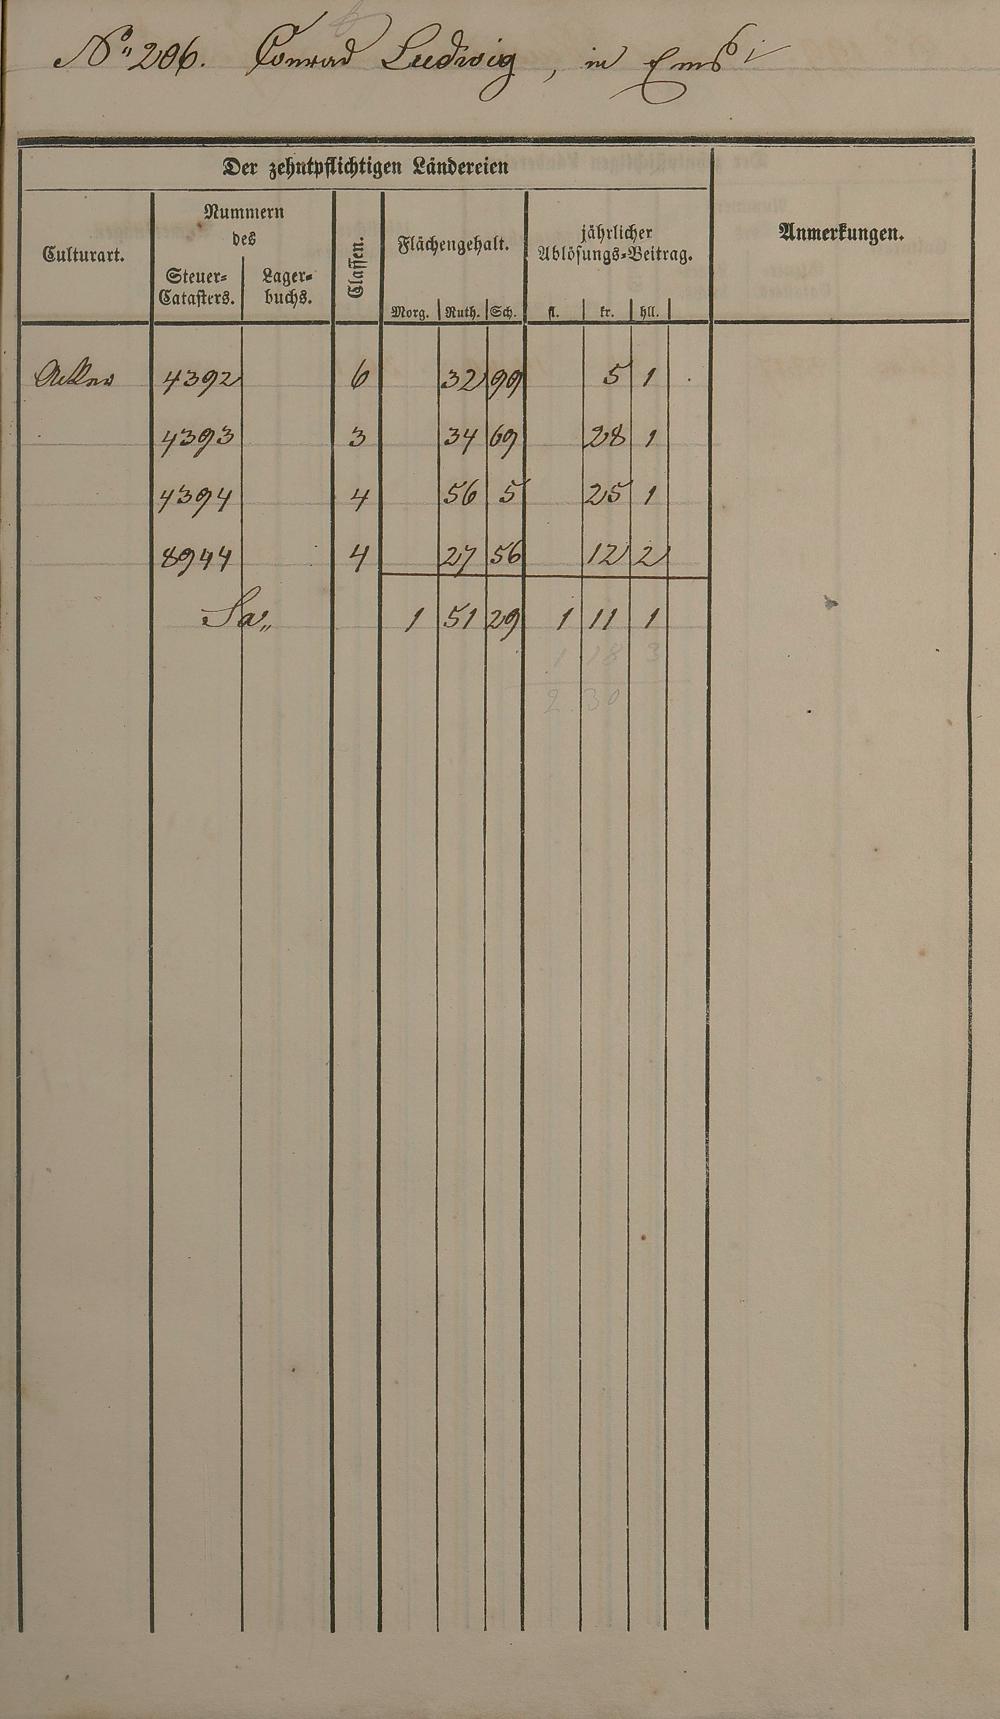 No 206. Conrad Ludwig, in Ems
Der zehntpflichtigen Ländereien
Culturart.
Nummern
des
Steuer-
Catasters.
Lager-
buchs.
Classen.
Flächengehalt.
Morg. Ruth. Sch.
jährlicher
Ablösungs-Beitrag.
fl. kr. hll.
Anmerkungen.
Aecker 4392 6 32 99 5 1
4393 3 34 69 28 1
4394 4 56 5 25 1
8944 4 27 56 12 2
Sa. 1 51 29 1 11 1
1 18 3
2 30